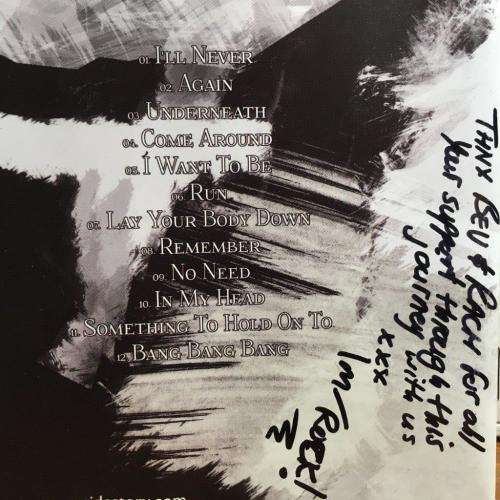 01. I'll Never
02. Again
03. Underneath
04. Come Around
05. I Want To Be
06. Run
07. Lay Your Body Down
08. Remember
09. No Need
10. In My Head
11. Something To Hold On To
12. Bang Bang Bang
THNX BEV & RACH for all
your support through this
journey with us
xxx